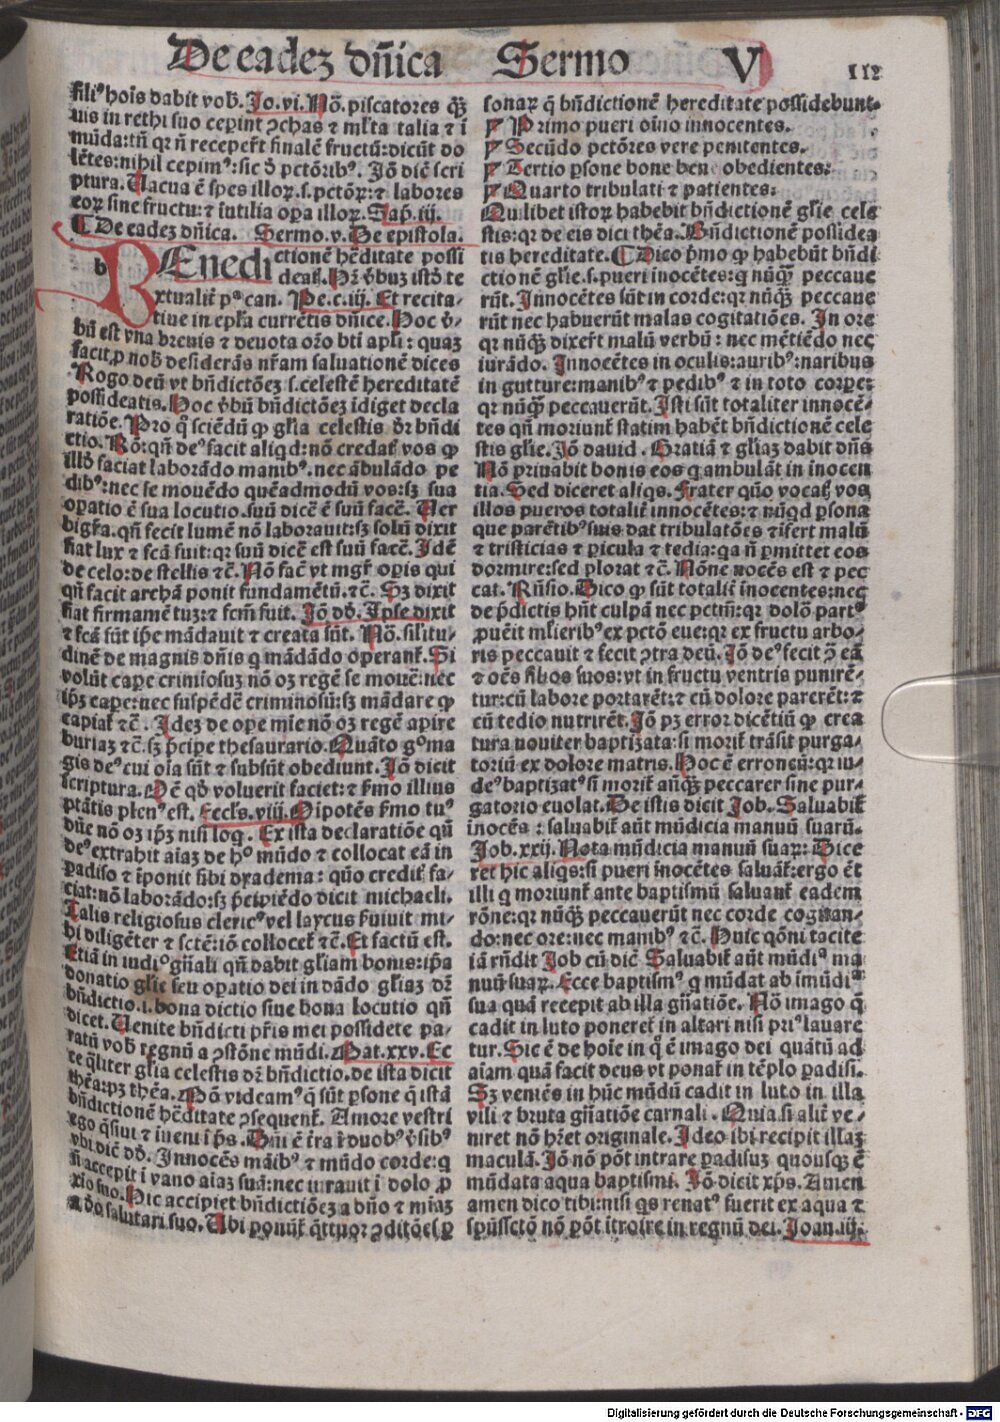 De eadeʒ dn̄ica Sermo V 112
filiꝰ hoīs dabit vob̄. Jo.vi. Nō. piscatores qn̄
uis in rethi suo ceperint ↄchas ⁊ ml̄ta talia ⁊ ī
mūda: tn̄ qr nō recepert̄ finalē fructū: dicūt do
lētes: nihil cepimꝰ: sic ꝺ pctōribꝰ. Jō dic̄ scri
ptura. Uacua ē spes illoꝝ.s. pctōꝝ: ⁊ labores
eoꝝ sine fructu: ⁊ īutilia oꝑa illoꝝ. Sap̄.iij.
De eadeʒ dn̄ica. Sermo.v. De epistola.
b BEnedictionē hēditate possi
deatꝭ.
xtualit̄ pᵃ can. Pe.c.iij. Et recita-
tiue in epl̄a currētis dn̄ice. Hoc ꝟ-
bū est vna breuis ⁊ deuota oro bti apl̄i: quaʒ
facit ꝓ nob̄ desiderās nr̄am saluationē dices
Rogo deū vt bn̄dictōeʒ s. celestē hereditatē
possideatis. Hoc ꝟbū bn̄dictōeʒ īdiget decla
ratiōe. Pro q̄ sciēdū ꝙ gl̄ia celestis dr̄ bn̄di
ctio. Rō: qn̄ deꝰ facit aliqd: nō credatꝭ vos ꝙ
illd̄ faciat laborādo manibꝰ. nec ābulādo pe
dibꝰ: nec se mouēdo quēadmodū vos: sʒ sua
oꝑatio ē sua locutio. suū dicē ē suū facē. Uer
bigr̄a. qn̄ fecit lumē nō laborauit: sʒ solū dixit
fiat lux ⁊ fcā fuit: qr suū dicē est suū facē. Idē
de celo: de stellis ⁊c̄. Nō fac̄ vt mgr̄ oꝑis qui
qn̄ facit archā ponit fundamētū. ⁊c̄. Sʒ dixit
fiat firmamētuʒ: ⁊ fcm̄ fuit. Jō dd̄. Ipse dixit
⁊ fcā sūt ip̄e mādauit ⁊ creata sūt. Nō. silitu-
dinē de magnis dn̄is q mādādo operant̄. Si
volūt caꝑe criminosuʒ nō oʒ regē se mouē: nec
ip̄ʒ caꝑe: nec suspēdē criminosū: sʒ mādare ꝙ
capiat̄ ⁊c̄. Ideʒ de oꝑe mie nō oʒ regē aꝑire
bursaʒ ⁊c̄. sʒ p̄cipe thesaurario. Quāto gᵒ ma
gis deꝰ cui oīa sūt ⁊ subsūt obediunt. Jō dicit
scriptura. Oē qd̄ voluerit faciet: ⁊ s̄mo illius
ptātis plenꝰ est. Eccl̄s.viij. Oipotēs s̄mo tuꝰ
dn̄e nō oʒ ip̄ʒ nisi loq̄. Ex ista declaratiōe qn̄
deꝰ extrahit aīaʒ de hᵒ mūdo ⁊ collocat eā in
ꝑadiso ⁊ īponit sibi dyadema: quō credit̄ fa-
ciat: nō laborādo: sʒ p̄cipiēdo dicit michaeli.
Talis religiosus clericꝰ vel laycus s̄uiuit mi-
hi diligēter ⁊ sctē: iō collocet̄ ⁊c̄. Et factū est.
Etiā in iudiᵒ gn̄ali qn̄ dabit gl̄iam bonis: ip̄a
donatio glie seu oꝑatio dei in dādo gl̄iaʒ dr̄
bn̄dictio. i. bona dictio sine bona locutio qn̄
dicet. Uenite bn̄dicti pr̄is mei possidete pa-
ratū vob̄ regnū a ↄstōne mūdi. Mat.xxv. Ec
ce q̄liter gl̄ia celestis dr̄ bn̄dictio. de ista dicit
thēa: pʒ thēa. Mō videamꝰ q̄ sūt ꝑsone q̄ istā
bn̄dictionē hēditate ↄsequent̄. Amore vestri
ego q̄siui ⁊ iueni ī ps̄. Qui ē īra ī duobꝰ ꝟsibꝰ
vbi dic̄ dd̄. Innocēs māibꝰ ⁊ mūdo corde: q
n̄ accepit ī vano aīaʒ suā: nec iurauit ī dolo ꝓ
xīo suo. Hic accipiet bn̄dictiōeʒ a dn̄o ⁊ miaʒ
a dō salutari suo. Ubi ponūt̄ q̄ttuor ↄditōes ꝑ
sonaꝝ q̄ bn̄dictionē hereditate possidebunt.
Primo pueri oīno innocentes.
Secūdo pctōres vere penitentes.
Tertio ꝑsone bone bene obedientes:
Quarto tribulati ⁊ patientes:
Quilibet istoꝝ habebit bn̄dictionē gl̄ie cele
stis: qr de eis dici thēa. Bn̄dictionē possidea
tis hereditate. Dico p̄mo ꝙ habebūt bn̄di
ctionē gl̄ie.s. pueri inocētes: q nūqꝫ peccaue
rūt. Innocētes sūt in corde: qr nūqꝫ peccaue
rūt nec habuerūt malas cogitatiōes. In ore
qr nūqꝫ dixert̄ malū verbū: nec mētiēdo nec
iurādo. Innocētes in oculis: auribꝰ: naribus
in gutture: manibꝰ ⁊ pedibꝰ ⁊ in toto corpe:
qr nūqꝫ peccauerūt. Isti sūt totaliter innocē-
tes qn̄ moriunt̄ statim habēt bn̄dictionē cele
stis glie. Jō dauid. Gratiā ⁊ gl̄iaʒ dabit dn̄s
Nō priuabit bonis eos q ambulāt in inocen
tia. Sed diceret aliqs. Frater quō vocatꝭ vos
illos pueros totalit̄ innocētes: ⁊ nūqd ꝑsona
que parētibꝰ suis dat tribulatōes ⁊ īfert malū
⁊ tristicias ⁊ ꝑicula ⁊ tedia: qa n̄ ꝑmittet eos
dormire: sed plorat ⁊c̄. Nōne nocēs est ⁊ pec
cat. Rn̄sio. Dico ꝙ sūt totalit̄ inocentes: nec
de p̄dictis hn̄t culpā nec pctm̄: qr dolō partꝰ
ꝓuēit ml̄ieribꝰ ex pctō eue: qr ex fructu arbo-
ris peccauit ⁊ fecit ↄtra deū. Jō deꝰ fecit ↄ̄ eā
⁊ oēs filios suos: vt in fructu ventris punirē-
tur: cū labore portarēt: ⁊ cū dolore parerēt: ⁊
cū tedio nutrirēt. Jō pʒ error dicētiū ꝙ crea
tura nouiter baptizata: si morit̄ trāsit purga-
toriū ex dolore matris. Hoc ē erroneū: qr iu-
deꝰ baptizatꝰ si morit̄ āteqꝫ peccaret sine pur-
gatorio euolat. De istis dicit Job. Saluabit̄
inocēs: saluabit̄ aūt mūdicia manuū suarū.
Job.xxij. Nota mūdicia manuū suaꝝ: Dice
ret hic aliqs: si pueri inocētes saluāt̄: ergo ēt
illi q moriunt̄ ante baptismū saluant̄ eadem
rōne: qr nūqꝫ peccauerūt nec corde cogitan-
do: nec ore: nec manibꝰ ⁊c̄. Huic qōni tacite
iā rn̄dit Job cū dic̄ Saluabit̄ aūt mūdiᵃ ma
nuū suaꝝ. Ecce baptismꝰ q mūdat ab īmūdiᵃ
sua quā recepit ab illa gn̄atiōe. Nō imago q̄
cadit in luto poneret̄ in altari nisi priꝰ lauare
tur. Sic ē de hoīe in q̄ ē imago dei quātū ad
aīam quā facit deus vt ponat̄ in tēplo ꝑadisi.
Sʒ veniēs in hūc mūdū cadit in luto in illa
vili ⁊ bruta gn̄atiōe carnali. Quia si alit̄ ve-
niret nō hr̄et originale. Ideo ibi recipit illaʒ
maculā. Jō nō pōt intrare ꝑadisuʒ quousqꝫ ē
mūdata aqua baptismi. Jō dicit xp̄s. Amen
amen dico tibi: nisi qs renatꝰ fuerit ex aqua ⁊
spūssctō nō pōt ītroire in regnū dei. Joan.iij.
Digitalisierung gefördert durch die Deutsche Forschungsgemeinschaft - DFG